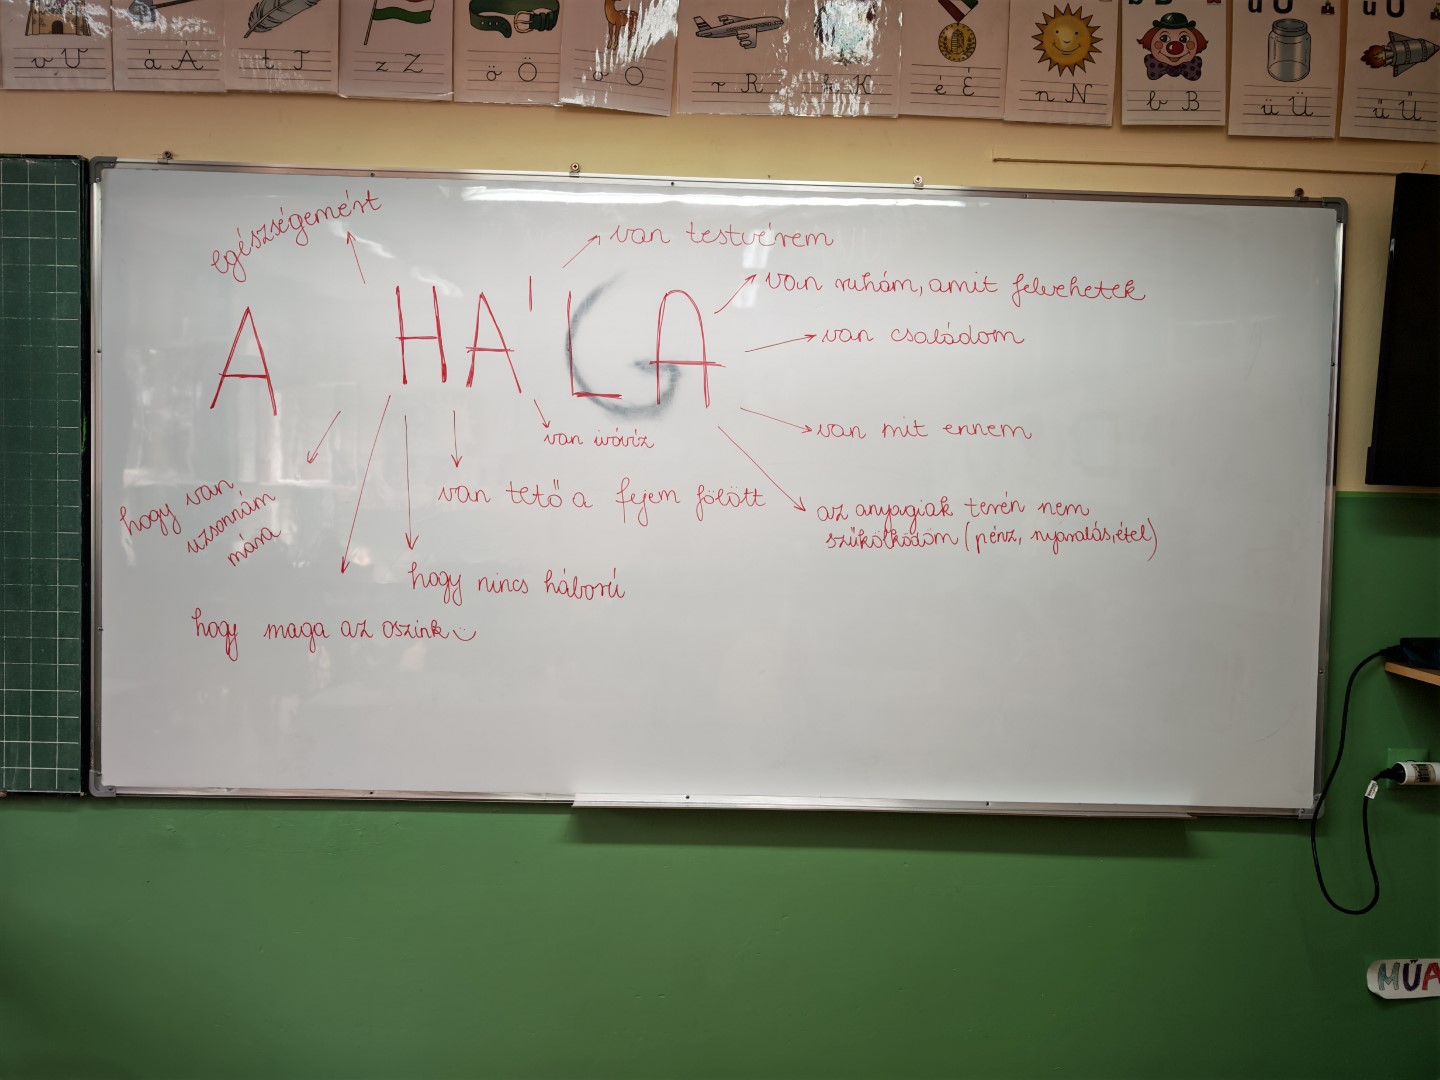 v V
á Á
t T
z Z
ö Ö
o O
r R
k K
é É
n N
b B
ü Ü
ű Ű
egészségemért
van testvérem
van ruhám, amit felvehetek
A HÁLA
van családom
van mit ennem
van ivóvíz
hogy van
uzsonnám
mára
van tető a fejem fölött
az anyagiak terén nem
szűkölködöm (pénz, nyaralás, étel)
hogy nincs háború
hogy maga az oszink
MŰA